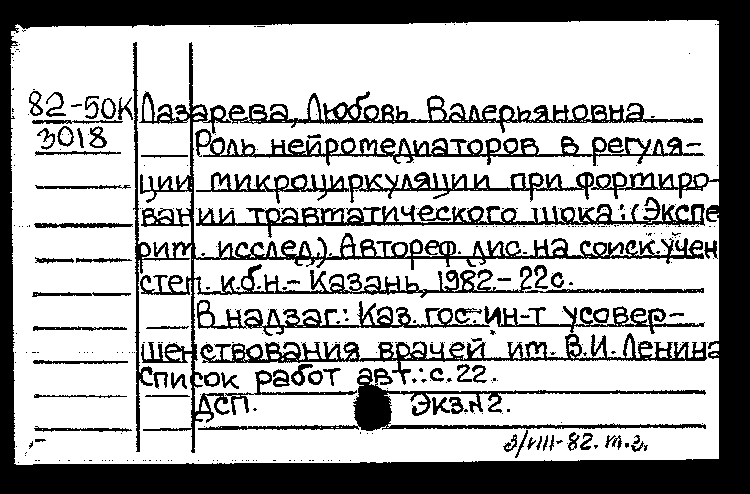 82-50К Лазарева, Любовь Валерьяновна.
3018 Роль нейромедиаторов в регуля-
ции микроциркуляции при формиро-
вании травматического шока: (Экспе
рим. исслед.). Автореф. дис. на соиск. учен
степ. к.б.н. - Казань, 1982 - 22с.
В надзаг.: Каз. гос. ин-т усовер-
шенствования врачей им. В.И. Ленина
Список работ авт.: с. 22.
ДСП. Экз. №2.
3/VIII-82. т.г.